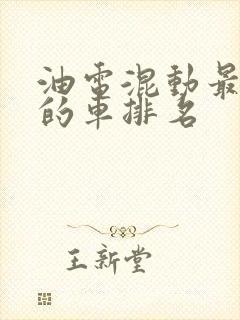 油電混動最
的車排名
王新堂